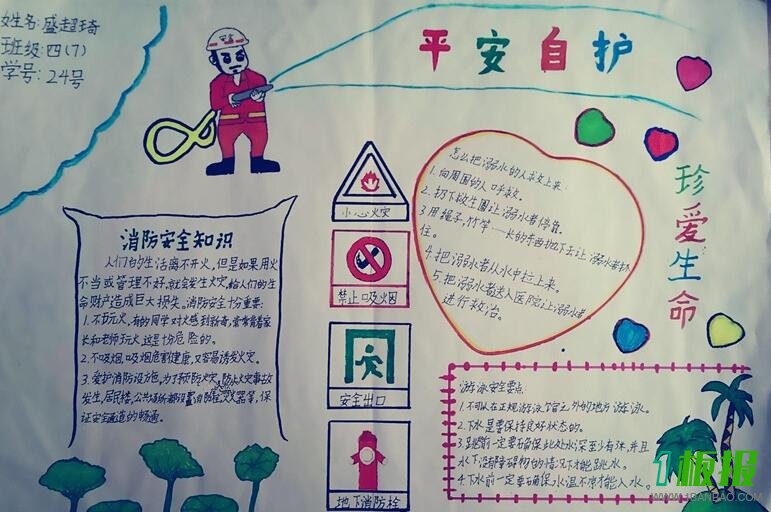 姓名:盛超琦
班级:四(7)
学号:24号
平安自护
珍爱生命
消防安全知识
人们的生活离不开火,但是如果用火
不当或管理不好,就会发生火灾,给人们的生
命财产造成巨大损失。消防安全十分重要:
1.不玩火,有的同学对火感到新奇,常常背着家
长和老师玩火,这是十分危险的。
2.不吸烟,吸烟危害健康,又容易诱发火灾。
3.爱护消防设施,为了预防火灾,防止火灾事故
发生,居民楼,公共场所都设置消防栓,灭火器等,保
证安全通道的畅通。
小心火灾
禁止吸烟
安全出口
地下消防栓
怎么把溺水的人救上来:
1.向周围的人呼救。
2.扔下救生圈让溺水者停靠。
3用绳子,竹竿一长的东西抛下去让溺水者抓
住。
4.把溺水者从水中拉上来。
5.把溺水者送入医院让溺水者
进行救治。
游泳安全要点:
1.不可以在正规游泳馆之外的地方游泳。
2.下水是要保持良好状态的。
3.跳前一定要确保此处水深至少有3米,并且
水下没有障碍物的情况下才能跳水。
4.下水前一定要确保水温不凉才能入水。
1板报
WWW.1BANBAO.COM